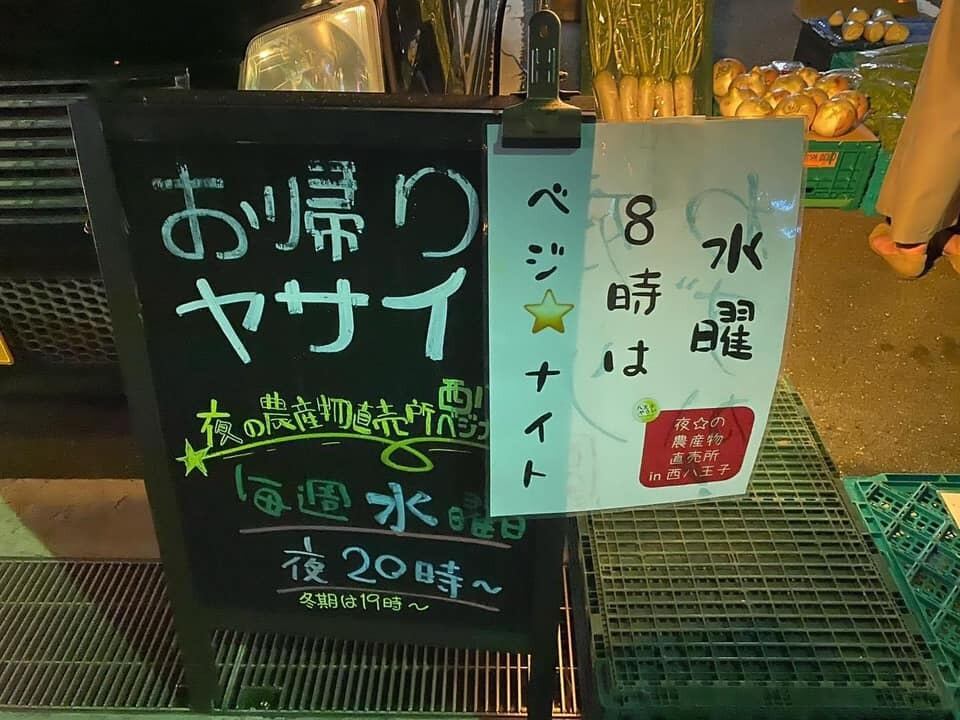 お帰り
ヤサイ
夜の農産物直売所
西八
ベジナ
毎週水曜日
夜20時～
冬期は19時～
水曜
8時は
ベジ⭐ナイト
夜☆の
農産物
直売所
in西八王子